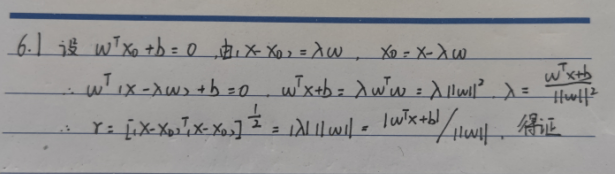 6.1 设 wᵀx₀+b=0 由(x-x₀)=λw, x₀=x-λw
∴ wᵀ(x-λw)+b=0. wᵀx+b=λwᵀw=λ||w||². λ=\frac{wᵀx+b}{||w||²}
∴ r=[(x-x₀)ᵀ(x-x₀)]^{\frac{1}{2}}=|λ| ||w||=|wᵀx+b|/||w||. 得证